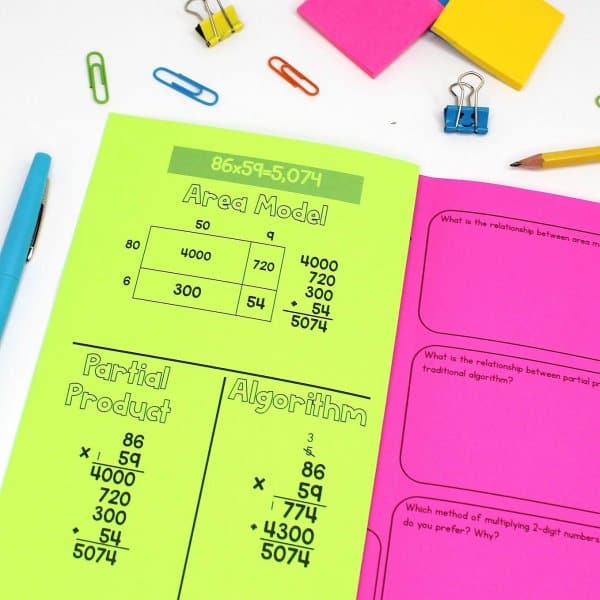 86x59=5,074
Area Model
50 9
80 4000 720
6 300 54
4000
720
300
+ 54
5074
Partial
Product
86
x 59
1
4000
720
300
+ 54
5074
Algorithm
3
5
86
x 59
1
774
+ 4300
5074
What is the relationship between area
What is the relationship between partial
traditional algorithm?
Which method of multiplying 2-digit numbers
do you prefer? Why?